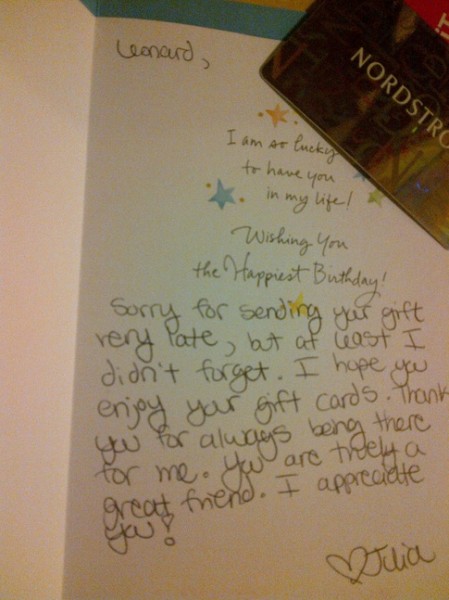 Leonard,
NORDSTRO
I am so lucky
to have you
in my life!
Wishing You
the Happiest Birthday!
Sorry for sending your gift
very late, but at least I
didn't forget. I hope you
enjoy your gift cards. Thank
you for always being there
for me. You are truely a
great friend. I appreciate
you!
♡Julia